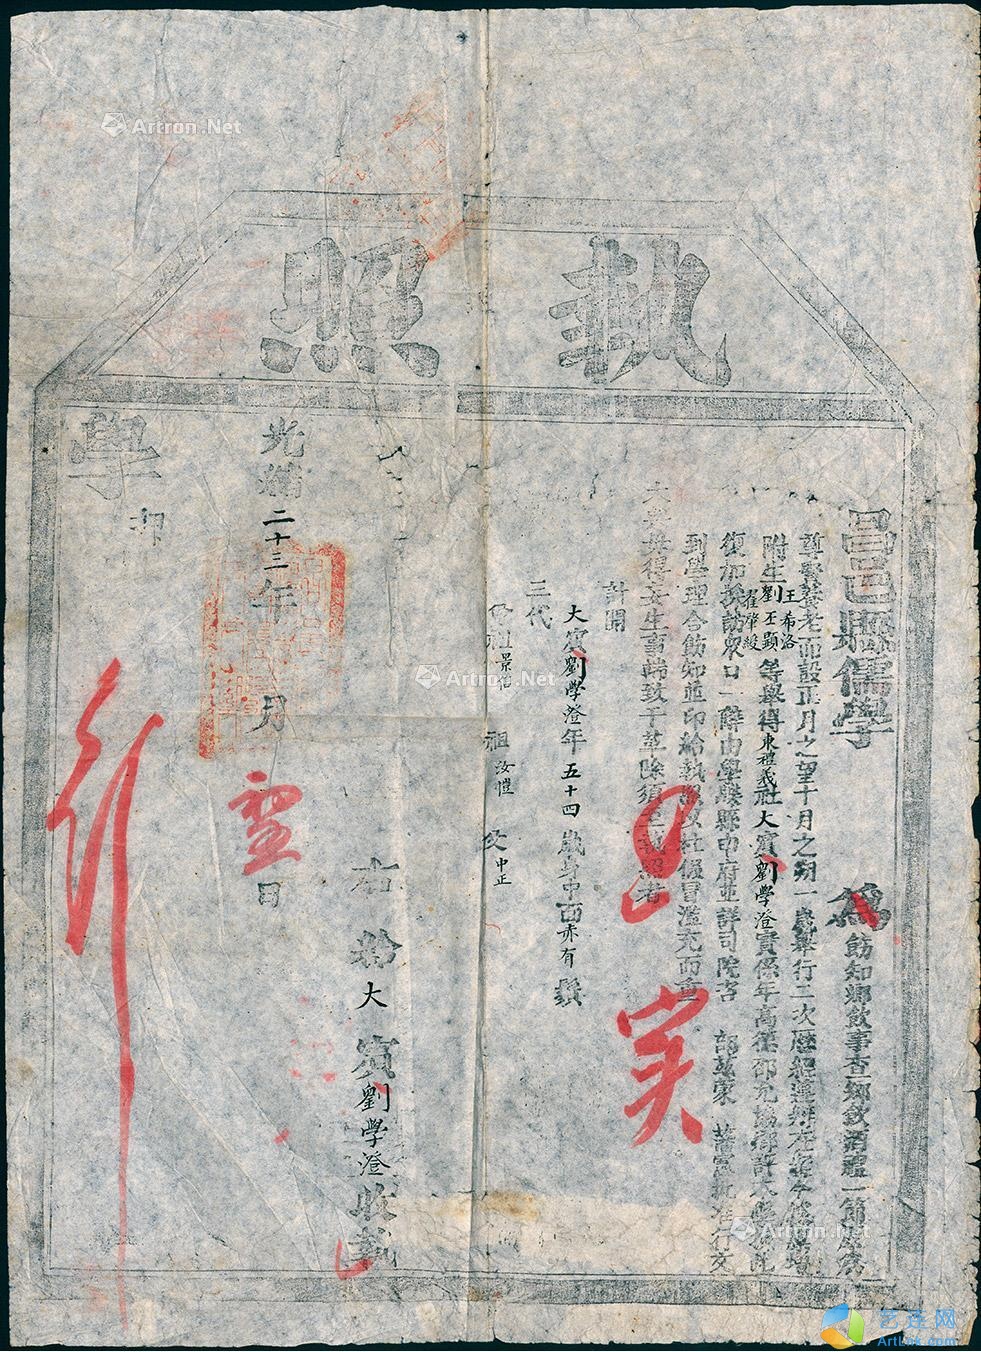 執照
昌邑縣儒學
為飭知鄉飲事查鄉飲酒禮一節原為
尊賢養老而設正月之望十月之朔一歲舉行二次歷經遵辦在案今據
附生王希洛劉丕顯等舉得東禮義社大賓劉學澄實係年高德邵允協鄉評
復加採訪眾口一辭由學牒縣申府並詳司院咨 部並蒙 藩憲批准行文
到學理合飭知並印給執照以杜假冒濫充而重
大典毋得妄生事端致干革除須至執照者
計開
大賓劉學澄年五十四歲身中面赤有鬚
三代
曾祖景 祖汝愷 父中正
右給大賓劉學澄收執
光緒二十三年 月 日
學
行
Artron.Net
Artron.Net
Artron.Net
艺连网
Artlink.com